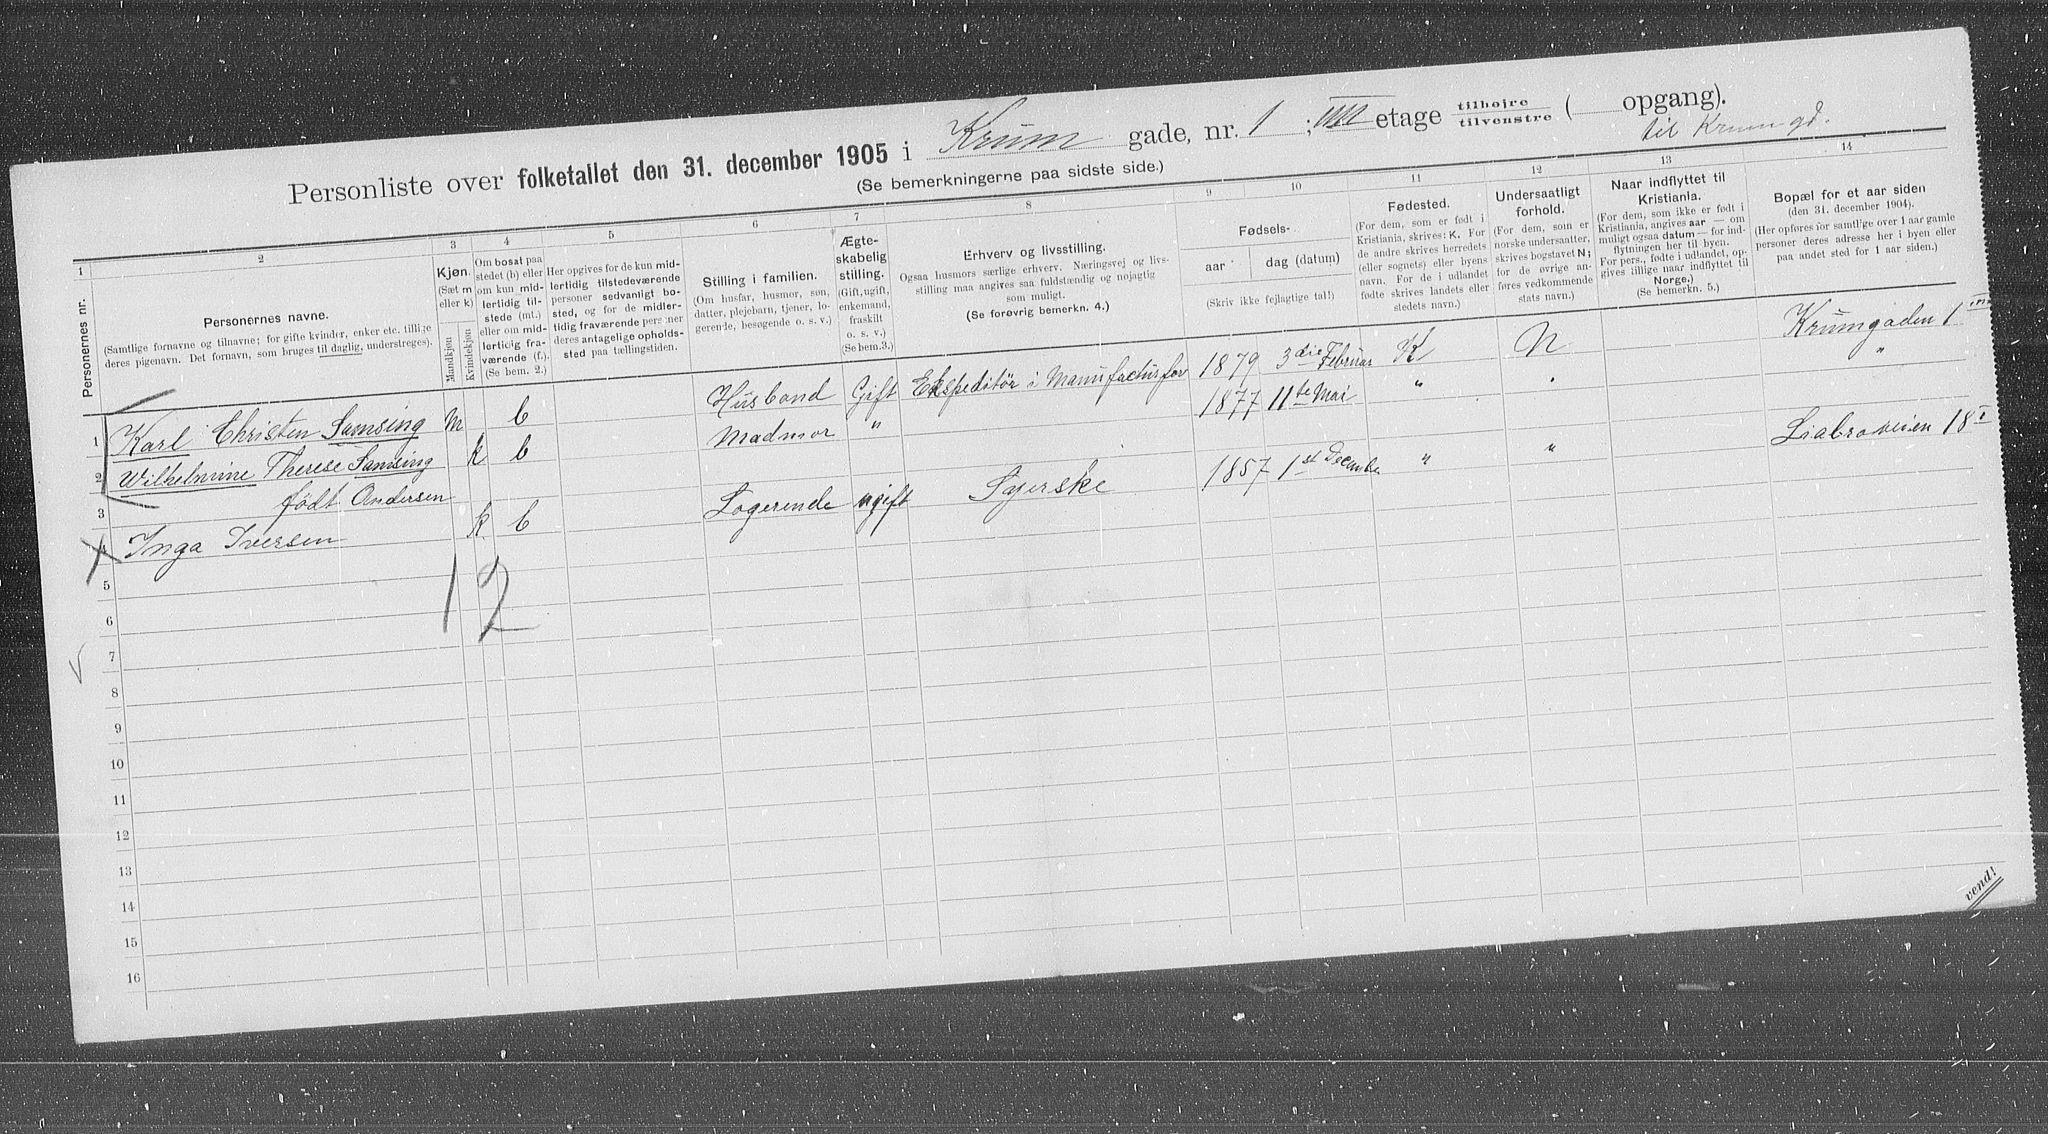 Personliste over folketallet den 31. december 1905 i Krum gade, nr. 1 ; etage tilhøjre tilvenstre ( opgang).
til Krumgd.
(Se bemerkningerne paa sidste side.)
1 2 3 4 5 6 7 8 9 10 11 12 13 14
Personernes nr.
Personernes navne.
(Samtlige fornavne og tilnavne; for gifte kvinder, enker etc. tillige
deres pigenavn. Det fornavn, som bruges til daglig, understreges).
Kjøn.
(Sæt m
eller k)
Mandkjøn
Kvindekjøn
Om bosat paa
stedet (b) eller
om kun mid-
lertidig til-
stede (mt.)
eller om mid-
lertidig fra-
værende (f.).
(Se bem. 2.)
Her opgives for de kun mid-
lertidig tilstedeværende
personer sedvanligt bo-
sted, og for de midler-
tidig fraværende personer
deres antagelige opholds-
sted paa tællingstiden.
Stilling i familien.
(Om husfar, husmor, søn,
datter, plejebarn, tjener, lo-
gerende, besøgende o. s. v.)
Ægte-
skabelig
stilling.
(Gift, ugift,
enkemand,
fraskilt
o. s. v.)
(Se bem.3.)
Erhverv og livsstilling.
Ogsaa husmors særlige erhverv. Næringsvej og livs-
stilling maa angives saa fuldstændig og nøjagtig
som muligt.
(Se forøvrig bemerkn. 4.)
Fødsels-
aar
dag (datum)
(Skriv ikke fejlagtige tal!)
Fødested.
(For dem, som er født i
Kristiania, skrives: K. For
de andre skrives herredets
(eller sognets) eller byens
navn. For de i udlandet
fødte skrives landets eller
stedets navn.)
Undersaatligt
forhold.
(For dem, som er
norske undersaatter,
skrives bogstavet N;
for de øvrige an-
føres vedkommende
stats navn.)
Naar indflyttet til
Kristiania.
(For dem, som ikke er født i
Kristiania, angives aar — om
muligt ogsaa datum — for ind-
flytningen her til byen.
For pers., fødte i udlandet, op-
gives tillige naar indflyttet til
Norge.)
(Se bemerkn. 5.)
Bopæl for et aar siden
(den 31. december 1904).
(Her opføres for samtlige over 1 aar gamle
personer deres adresse her i byen eller
paa andet sted for 1 aar siden.)
1 Karl Christen Samsing m b Husbond Gift Ekspeditør i Manufacturfor 1879 3die Februar K N Krumgaden 1
2 Wilhelmine Therese Samsing k b Madmor " 1877 11te Mai " " "
3 født Andersen
4 Inga Iversen k b Logerende ugift Syerske 1857 1st December " " Liabroveien 18 I
5
1 2
6
7
8
9
10
11
12
13
14
15
16
vend!